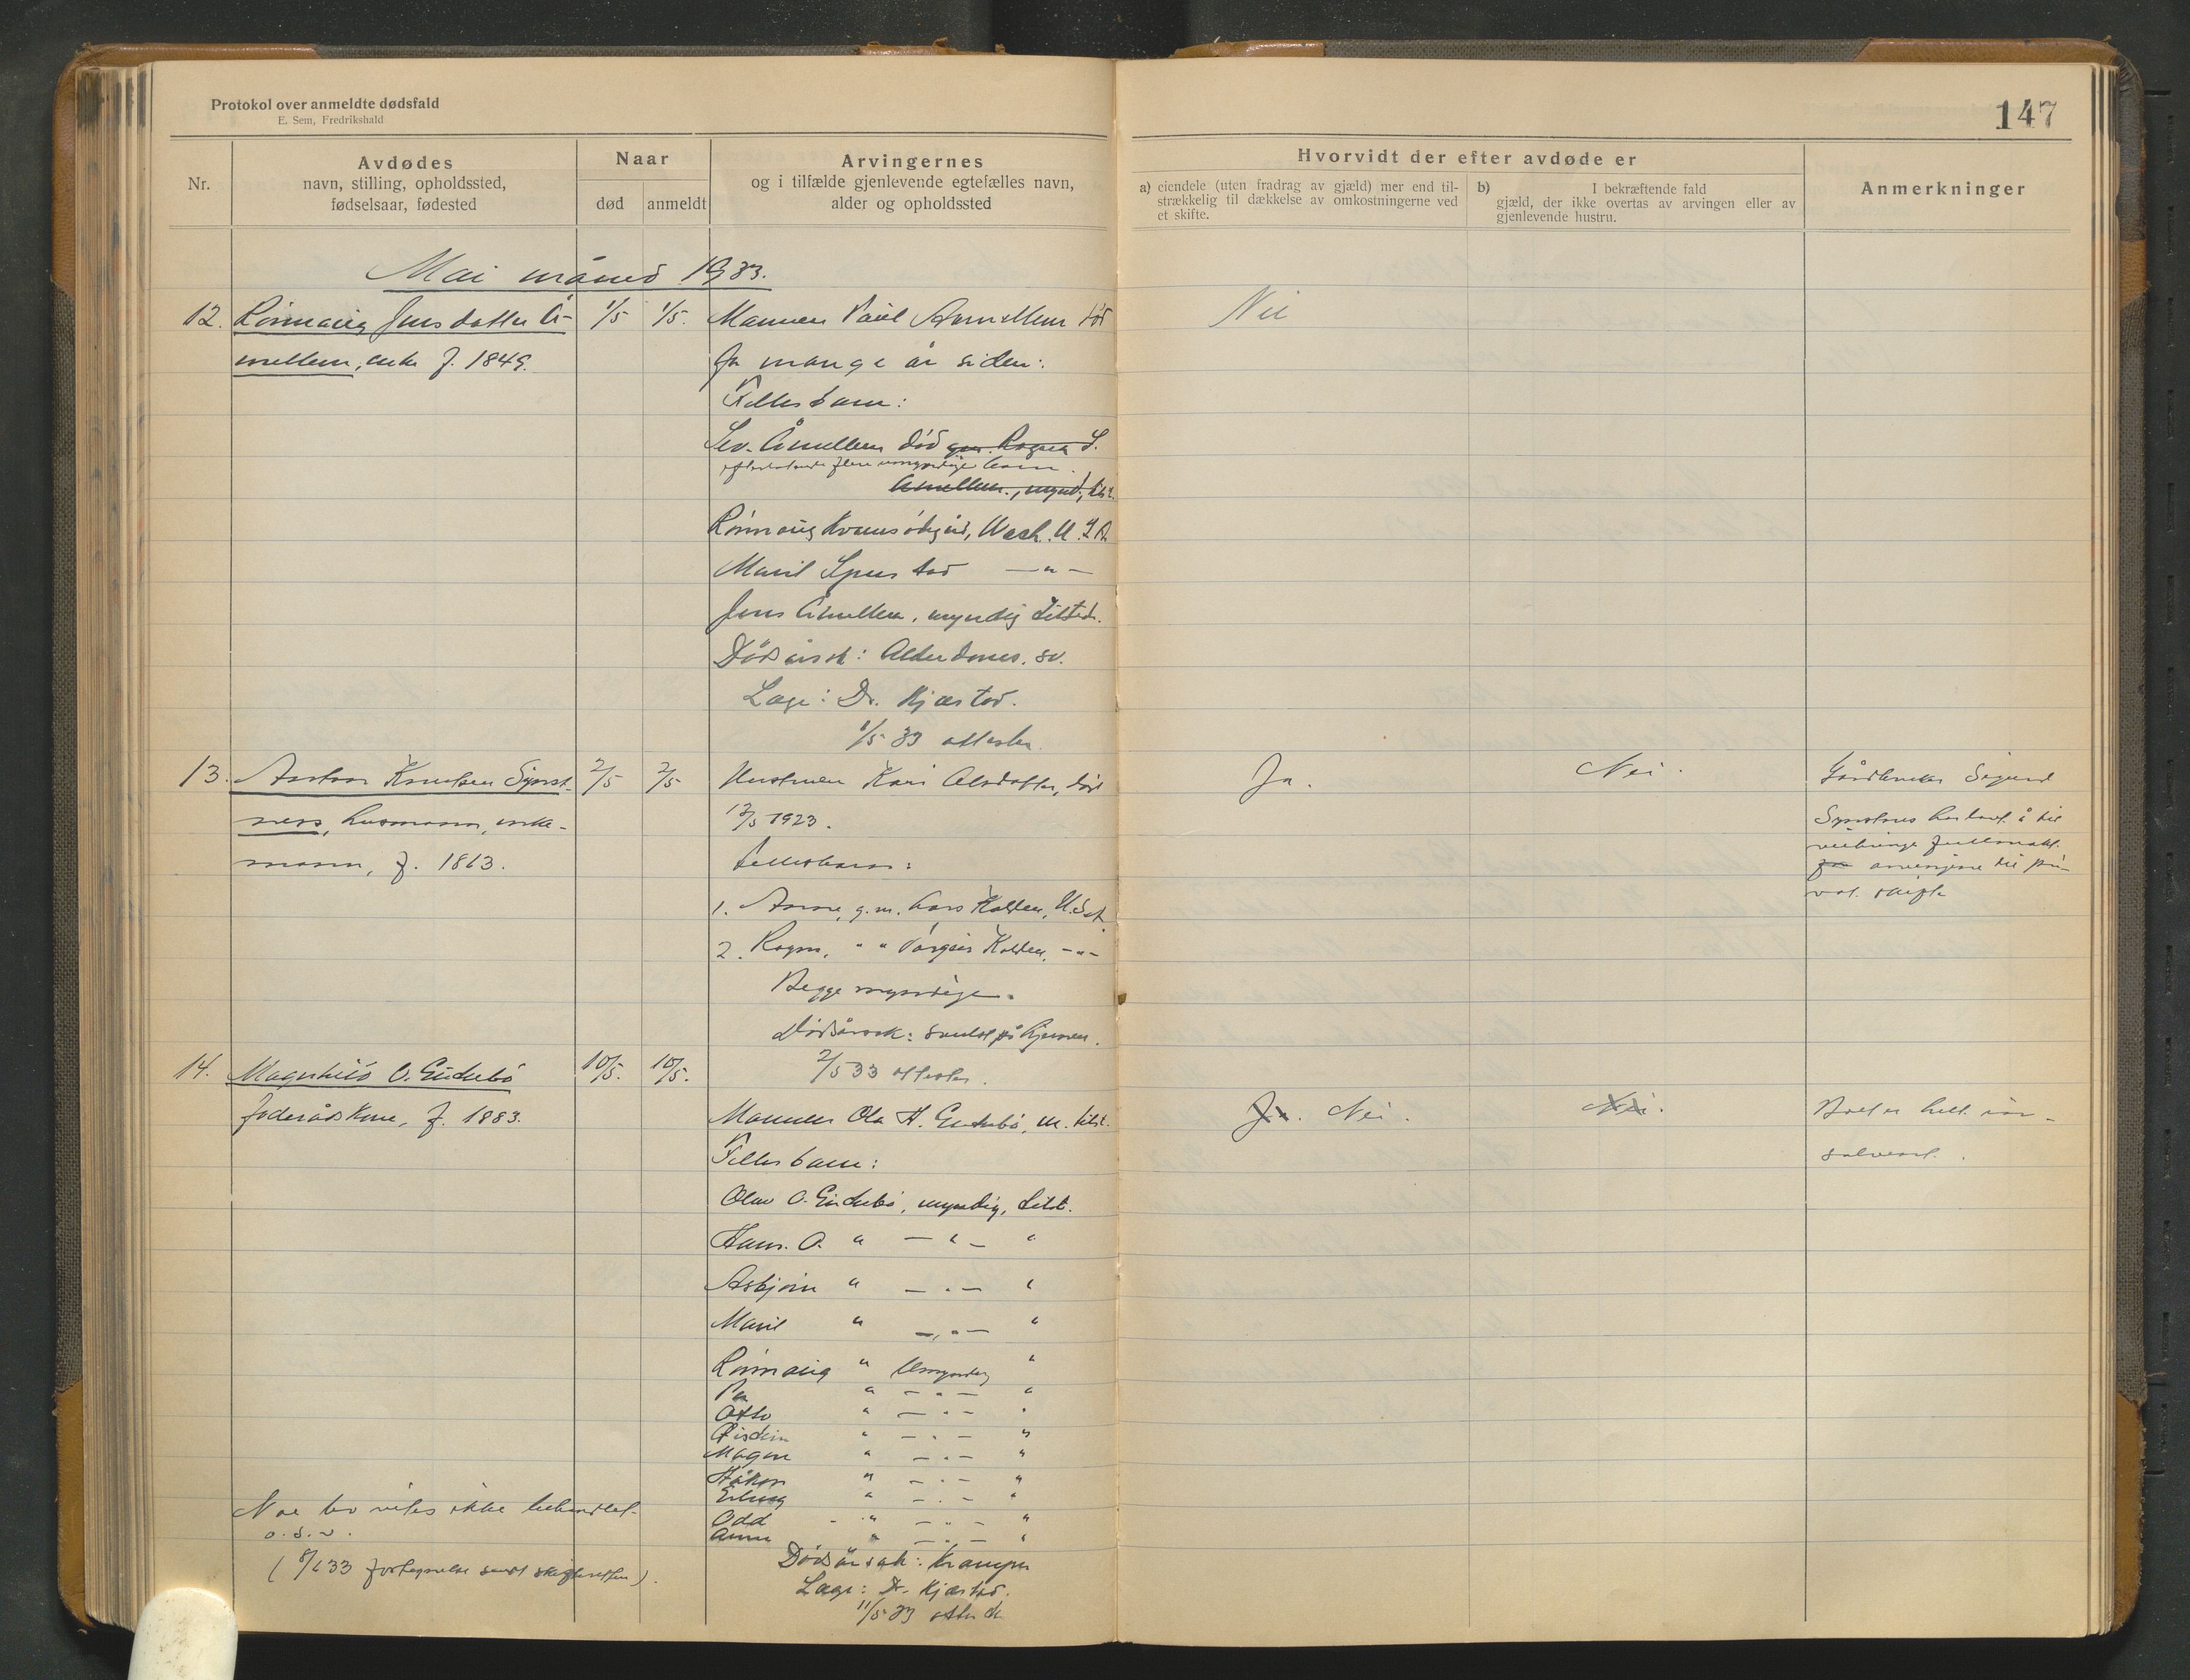 Protokol over anmeldte dødsfald
E. Sem, Fredrikshald
147
Nr.
Avdødes
navn, stilling, opholdssted,
fødselsaar, fødested
Naar
død
anmeldt
Arvingernes
og i tilfælde gjenlevende egtefælles navn,
alder og opholdssted
Hvorvidt der efter avdøde er
a) eiendele (uten fradrag av gjæld) mer end til-
strækkelig til dækkelse av omkostningerne ved
et skifte.
b) I bekræftende fald
gjæld, der ikke overtas av arvingen eller av
gjenlevende hustru.
Anmerkninger
Mai måned 1933.
12. Rönnaug Jensdatter Å-
mellem, enke f. 1849.
1/5 1/5.
Mannen Paul Åmellem död
for mange år siden.
Fellesbarn:
Sev. Åmellem död gm. Ragna S.
efterlatende flere umyndige barn.
Åmellem, mynd., tilst.
Rönnaug Kvamsödegård, Wash. U.S.A.
Marit —"—
Jens Åmellem, myndig tilsteds.
Dödsårsak: Alderdoms. sv.
Læge: Dr. Kjærstad.
1/5 33 attester.
Nei
13. Aastean Knutsen Synst-
ness, husmann, enke-
mann, f. 1863.
2/5 2/5
Hustruen Kari Olsdatter, död
1923.
Fellesbarn:
1. Anne, g.m. Lars Kolden, U.S.A.
2. Ragn, " " Torgeir Kolden, —"—
Begge myndige.
Dödsårsak:
2/5 33 attester.
Ja.
Nei.
Gårdbruker Sigurd
Synstnes har lovt å til
veiebringe fullmakt
fra arvingene til pri-
vat skifte
14. Magnhild O. Eidebö
foderådskone, f. 1883.
10/5. 10/5.
Mannen Ola H. Eidebö, m. tilst.
Fellesbarn:
Olav O. Eidebö, myndig, tilst.
Hans. O. " —"— "
Asbjörn " —"— "
Marit " —"— "
Rönnaug " Umyndig "
Per " —"— "
Otto " —"— "
Östein " —"— "
Magne " —"— "
Håkon " —"— "
Erling " —"— "
Odd " —"— "
Anne " —"— "
Dödsårsak: Kramper
Læge: Dr. Kjærstad.
11/5 33 attest
Ja. Nei.
Nei.
Boet er helt in-
solvent.
Noe bo vites ikke behandlet
o.s.v.
(8/6 33 fortegnelse sendt skifteretten).